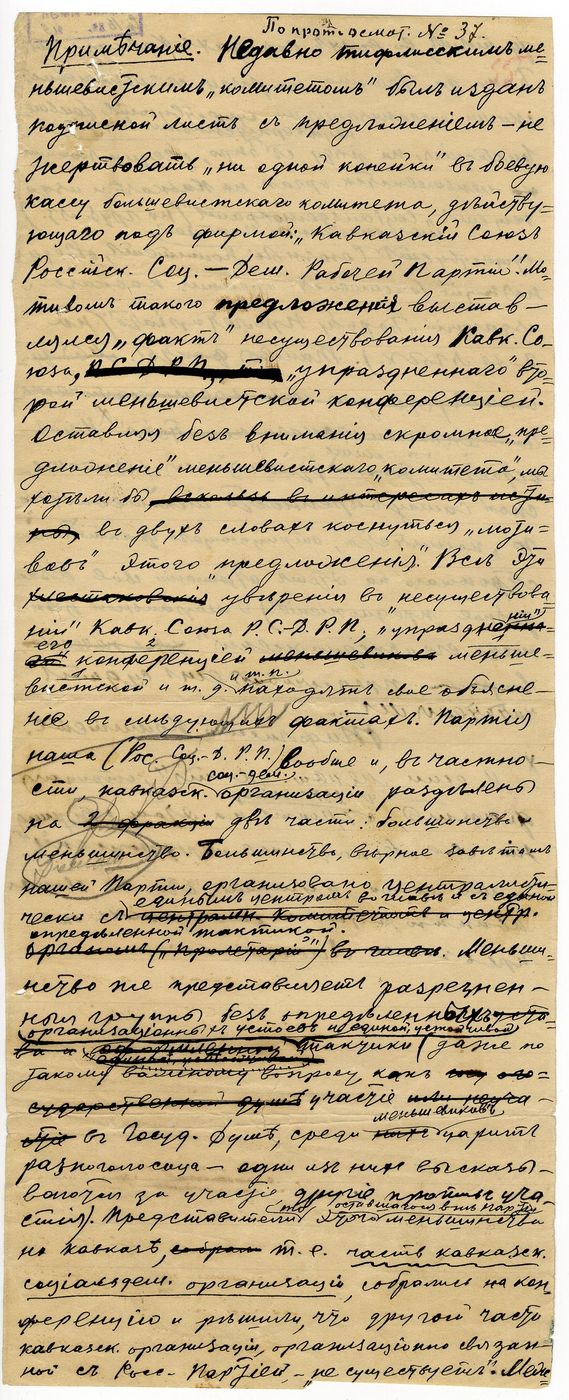 По прот. осмот. № 37.
Примѣчаніе. Недавно тифлисскимъ ме-
ньшевистскимъ „комитетомъ" былъ изданъ
подписной листъ съ предложеніемъ – не
жертвовать „ни одной копейки" въ боевую
кассу большевистскаго комитета, дѣйству-
ющаго подъ фирмой: „Кавказскій Союзъ
Россійск. Соц. – Дем. Рабочей Партіи". Мо-
тивомъ такого предложенія выстав-
лялся „фактъ" несуществованія Кавк. Со-
юза, Р.С.-Д.Р.П., „упраздненнаго" вто-
рой меньшевистской конференціей.
Оставляя безъ вниманія скромное „пре-
дложеніе" меньшевистскаго „комитета", мы
хотѣли бы вскользь въ интересахъ исти-
ны въ двухъ словахъ коснуться „моти-
вовъ" этого предложенія". Всѣ эти
увѣренія въ несуществова
ніи" Кавк. Союза Р.С.-Д.Р.П., „упраздненіи"
его 2 конференціей меньше-
вистской и т. д. и т. п. находятъ свое объясне-
ніе въ слѣдующихъ фактахъ. Партія
наша (Рос. Соц.-Д. Р. П.) вообще и, въ частно-
сти, кавказск. соц.-дем. организаціи раздѣлены
на 2 фракціи двѣ части: большинство и
меньшинство. Большинство, вѣрное завѣтамъ
нашей Партіи, организовано централисти-
чески съ единымъ центромъ во главѣ и съ единой
центральн. Комитетомъ и центр.
опредѣленной тактикой.
органомъ („Пролетарій") во главѣ. Меньши-
нство же представляетъ разрознен-
ныя группы безъ опредѣленныхъ
организаціонныхъ устоевъ и единой, устойчивой
тактики (даже по
такому важному вопросу, какъ
государственной думѣ участіе или неуча-
стіе въ Госуд. Думѣ, среди нихъ меньшевиковъ царитъ
разноголосица – одни изъ нихъ высказы-
ваются за участіе, другіе противъ уча-
стія). Представители этого оставшагося внѣ партіи меньшинства
на кавказѣ, собрали т. е. часть кавказск.
соціальдем. организаціи, собрались на кон-
ференцію и рѣшили, что другой части
кавказск. организаціи, организаціонно связан-
ной съ Росс. Партіей, – „не существуетъ". Мень